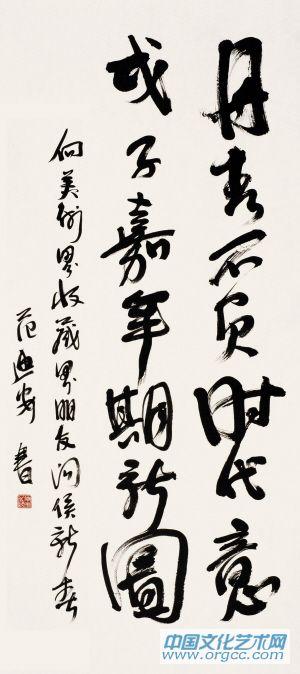 丹青不负时代意
戊子嘉年期新图
向美术界收藏界朋友问候新春
范迪安 书
中国文化艺术网
www.orgcc.com